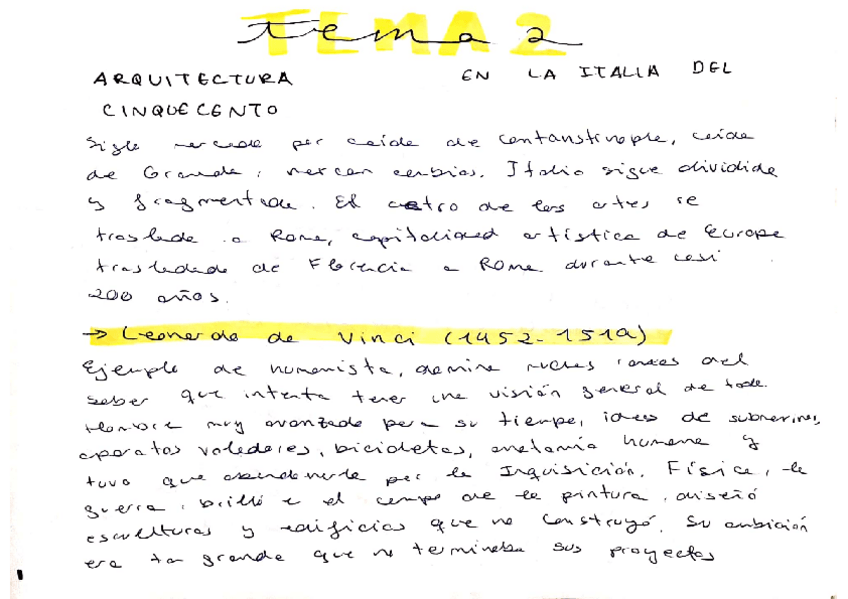 tema 2
ARQUITECTURA EN LA ITALIA DEL
CINQUECENTO
Siglo marcado por caída de Contanstinople, caída
de Granada, marcan cambios. Italia sigue dividida
y fragmentada. El centro de las artes se
traslada a Roma, capitalidad artística de Europa
trasladada de Florencia a Roma durante casi
200 años.
→ Leonardo da Vinci (1452-1519)
Ejemplo de humanista, domina muchas ramas del
saber que intenta tener una visión general de todo.
Hombre muy avanzado para su tiempo, ideas de submarinos,
aparatos voladores, bicicletas, anatomía humana y
tuvo que abandonarla por la Inquisición. Física, la
guerra, brilló en el campo de la pintura, diseñó
esculturas y edificios que no construyó. Su ambición
era tan grande que no terminaba sus proyectos